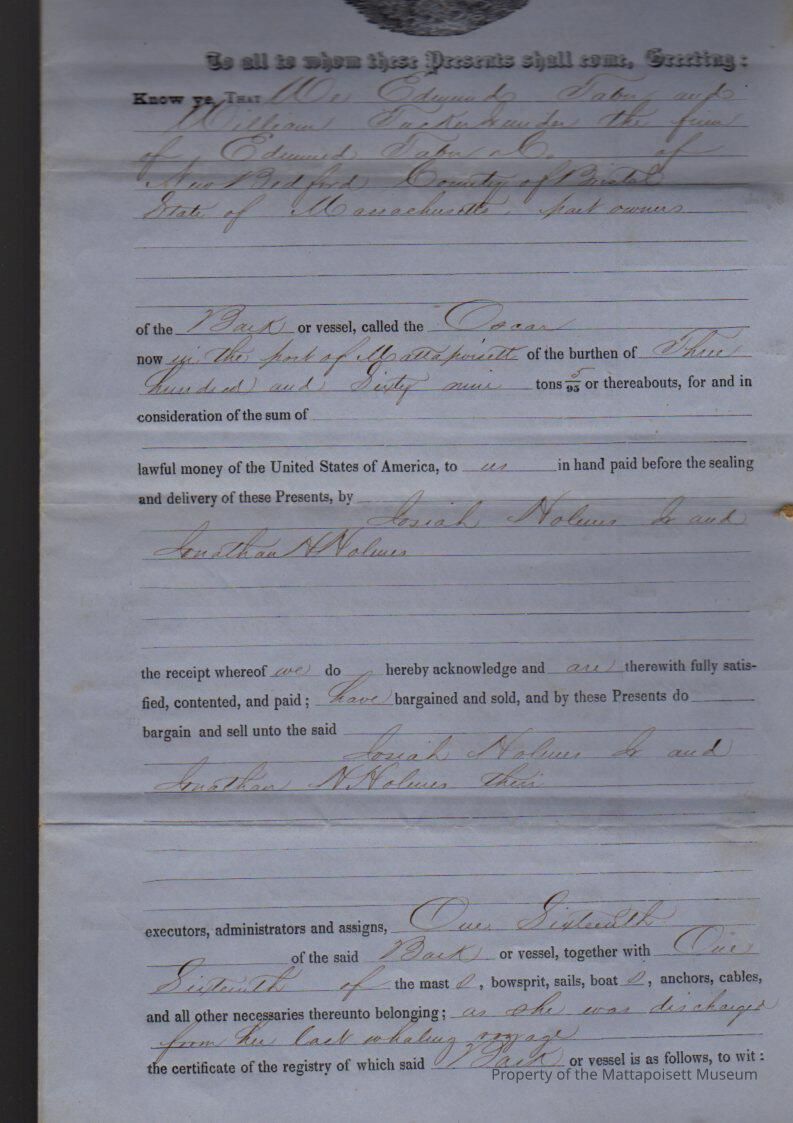 To all to whom these Presents shall come, Greeting:
Know ye, THAT We Edmund Taber and
William Tucker under the firm
of Edmund Taber & Co. of
New Bedford County of Bristol
State of Massachusetts, part owners
of the Bark or vessel, called the Oscar
now in the port of Mattapoisett of the burthen of Three
hundred and Sixty nine tons 5/95 or thereabouts, for and in
consideration of the sum of
lawful money of the United States of America, to us in hand paid before the sealing
and delivery of these Presents, by
Josiah Holmes Jr and
Jonathan H Holmes
the receipt whereof we do hereby acknowledge and are therewith fully satis-
fied, contented, and paid; have bargained and sold, and by these Presents do
bargain and sell unto the said
Josiah Holmes Jr and
Jonathan H Holmes their
executors, administrators and assigns, One Sixteenth
of the said Bark or vessel, together with One
Sixteenth of the mast s, bowsprit, sails, boat s, anchors, cables,
and all other necessaries thereunto belonging; as she was discharged
from her last whaling voyage
the certificate of the registry of which said Bark or vessel is as follows, to wit:
Property of the Mattapoisett Museum